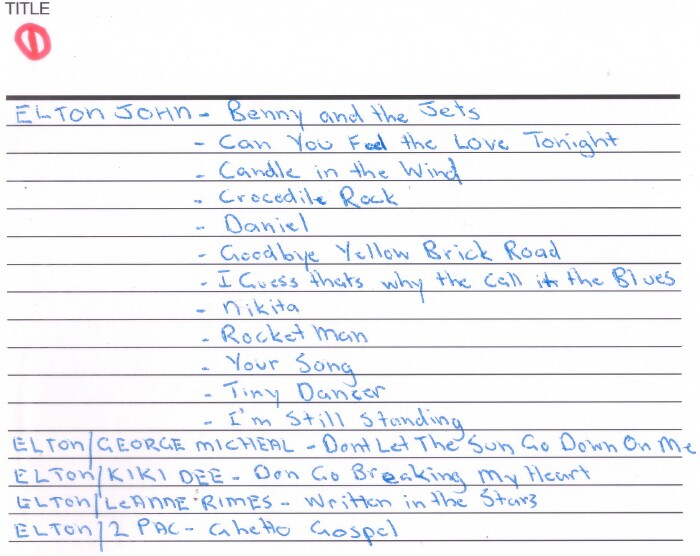 TITLE
1
ELTON JOHN - Benny and the Jets
- Can You Feel the Love Tonight
- Candle in the Wind
- Crocedile Rock
- Daniel
- Goodbye Yellow Brick Road
- I Guess thats why the call it the Blues
- Nikita
- Rocket Man
- Your Song
- Tiny Dancer
- I'm Still Standing
ELTON/GEORGE MICHEAL - Dont Let The Sun Go Down On Me
ELTON/KIKI DEE - Don Go Breaking My Heart
ELTON/LeANNE RIMES - Written in the Stars
ELTON/2 PAC - Ghetto Gospel